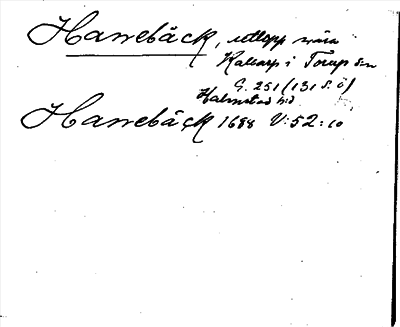 Hanebäck, utlopp nära
Kallarp i Torup sn
G. 251 (131 S. Ö)
Halmstad hd
Hanebäck 1688 V:52:10